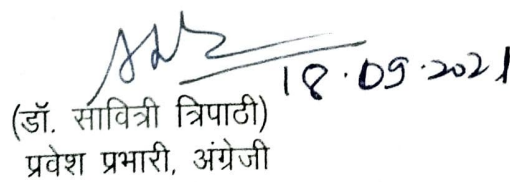 18.09.2021
(डॉ. सावित्री त्रिपाठी)
प्रवेश प्रभारी, अंग्रेजी